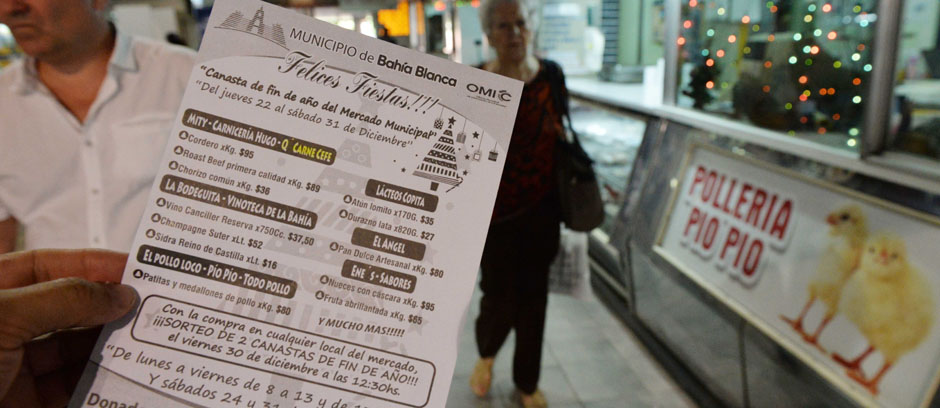 MUNICIPIO de Bahía Blanca
OMIC
Felices Fiestas!!!
"Canasta de fin de año del Mercado Municipal"
"Del jueves 22 al sábado 31 de Diciembre"
MITY - CARNICERÍA HUGO - Q´CARNE CEFE
Cordero xKg. $95
Roast Beef primera calidad xKg. $89
Chorizo común xKg. $36
LA BODEGUITA - VINOTECA DE LA BAHÍA
Vino Canciller Reserva x750Cc. $37,50
Champagne Suter xLt. $52
Sidra Reino de Castilla xLt. $16
EL POLLO LOCO - PÍO PÍO - TODO POLLO
Patitas y medallones de pollo xKg. $80
LÁCTEOS COPITA
Atún lomito x170G. $35
Durazno lata x820G. $27
EL ÁNGEL
Pan Dulce Artesanal xKg. $80
ENE´S - SABORES
Nueces con cáscara xKg. $95
Fruta abrillantada xKg. $65
Y MUCHO MAS!!!!!
Con la compra en cualquier local del mercado,
¡¡¡SORTEO DE 2 CANASTAS DE FIN DE AÑO!!!
el viernes 30 de diciembre a las 12:30hs.
"De lunes a viernes de 8 a 13 y de
Y sábados 24 y 31
Donado
POLLERIA
PIO PIO